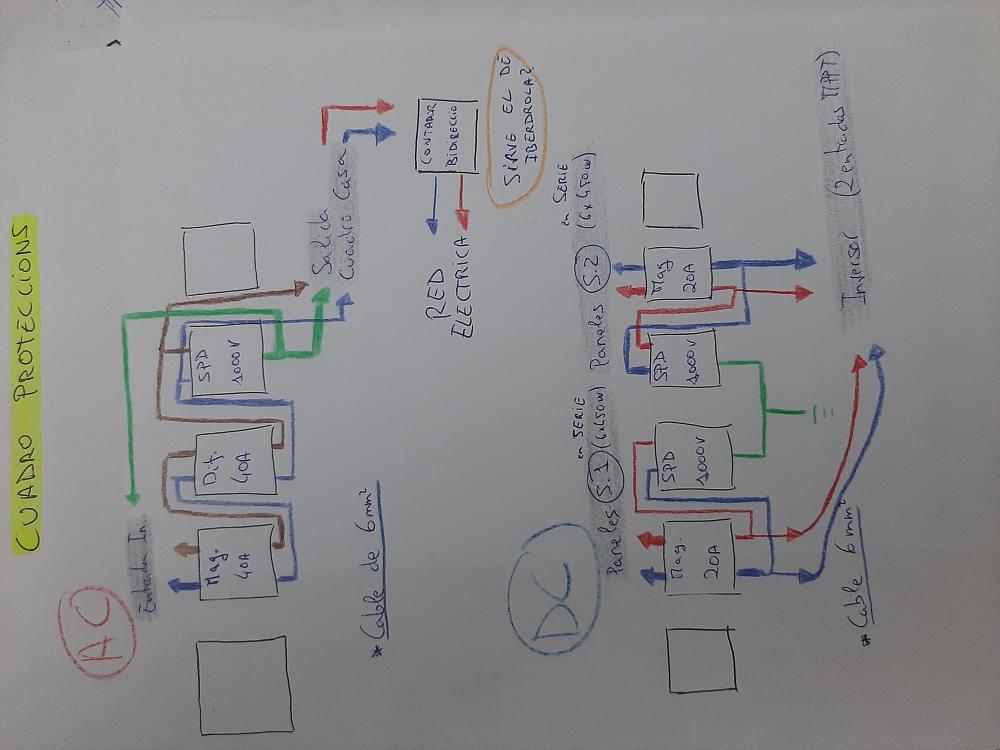 CUADRO PROTECCIONS
AC
Entrada In.
Mag.
40A
Dif.
40A
SPD
1000V
Salida
Cuadro Casa
* Cable de 6mm²
CONTADOR
BIDIRECCIO
RED
ELECTRICA
SIRVE EL DE
IBERDROLA?
DC
Paneles S.1 (6x450w)
en SERIE
Paneles S.2 (6x450w)
en SERIE
Mag.
20A
SPD
1000V
SPD
1000V
Mag
20A
Inversor (2 entradas MPPT)
* Cable 6mm²